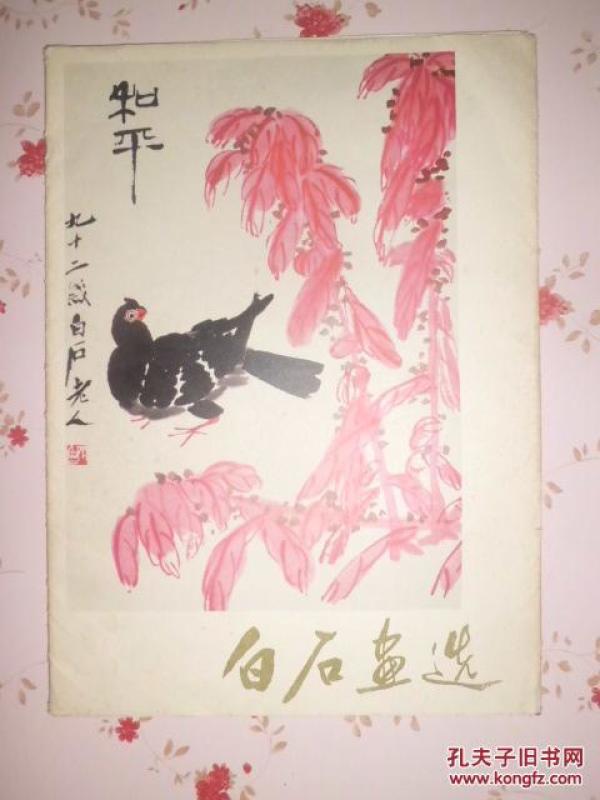 和平
九十二岁白石老人
白石画选
孔夫子旧书网
www.kongfz.com